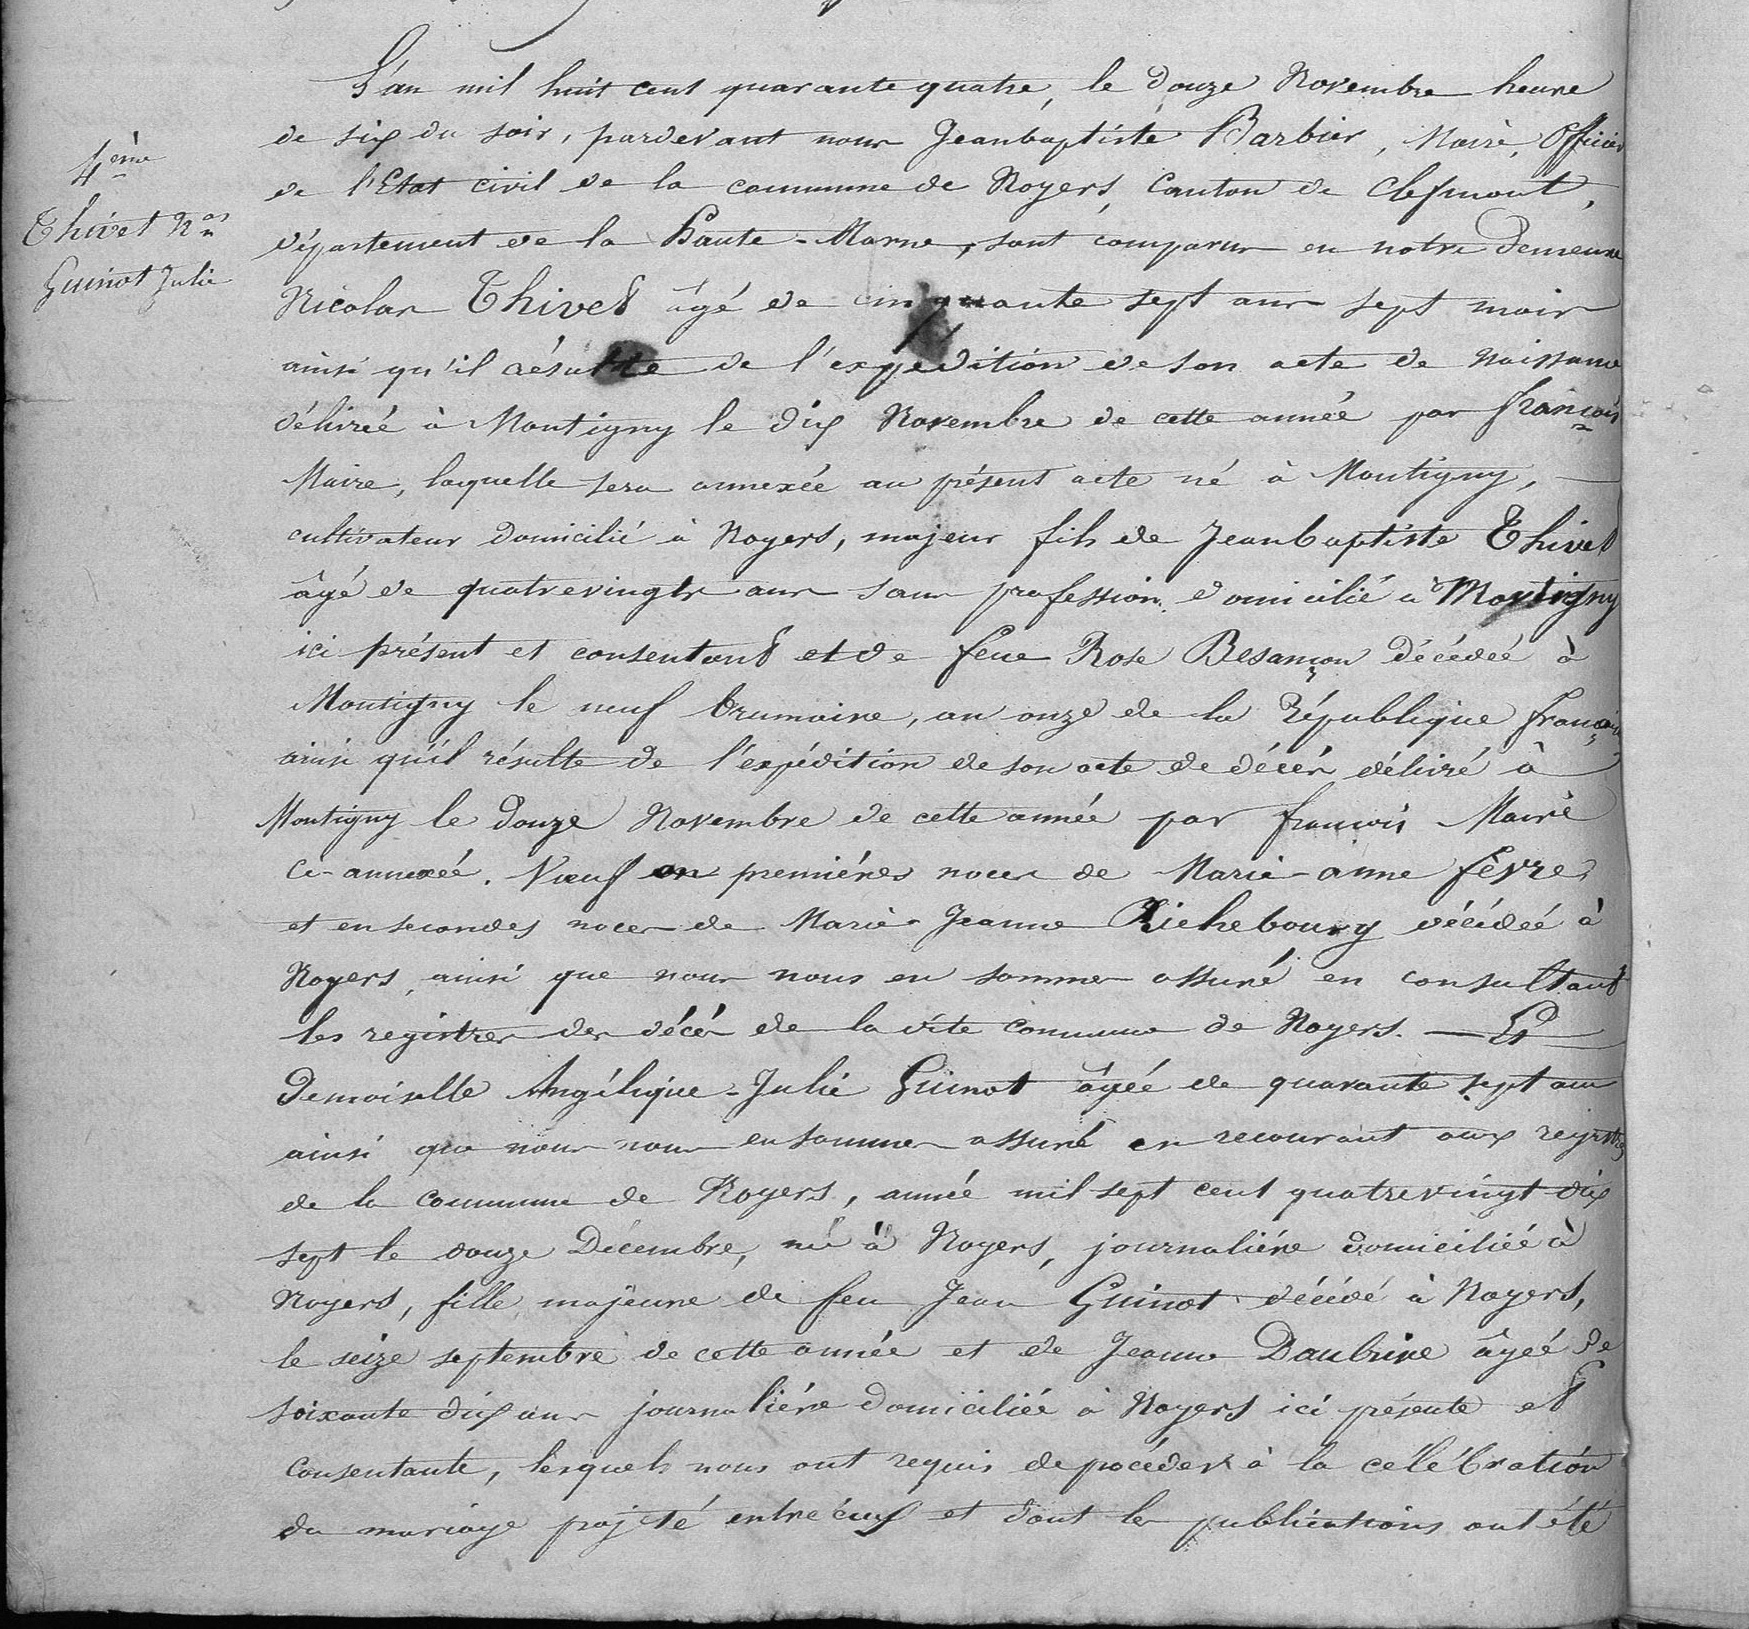 4ème
Thivet Nas
Guinot Julie
L'an mil huit cent quarante quatre, le douze Novembre heure
de six du soir, pardevant nous Jeanbaptiste Barbier, Maire, Officier
de l'Etat civil de la commune de Noyers, Canton de Clefmont,
département de la Haute-Marne, sont comparus en notre demeure
Nicolas Thivet âgé de cinquante sept ans sept mois
ainsi qu'il résulte de l'expedition de son acte de Naissance
délivrée à Montigny le dix Novembre de cette année par françois
Maire, laquelle sera annexée au présent acte né à Montigny,
cultivateur domicilié à Noyers, majeur fils de Jeanbaptiste Thivet
âgé de quatrevingts ans sans profession domicilié à Montigny
ici présent et consentant et de feue Rose Besançon décédée à
Montigny le neuf brumaire, an onze de la République française
ainsi qu'il résulte de l'expédition de son acte de décès délivré à
Montigny le douze Novembre de cette année par françois Maire
ci-annexée. Veuf en premières noces de Marie-anne fèvre,
et en secondes noces de Marie-Jeanne Richebourg décédée à
Noyers, ainsi que nous nous en sommes assuré en consultant
les registres des décès de la dite commune de Noyers. — Et
Demoiselle Angélique-Julie Guinot âgée de quarante sept ans
ainsi que nous nous en sommes assuré en recourant aux registres
de la commune de Noyers, année mil sept cent quatrevingt dix
sept le douze Décembre, né à Noyers, journalière domiciliée à
Noyers, fille majeure de feu Jean Guinot décédé à Noyers,
le seize septembre de cette année et de Jeanne Daubrive âgée de
soixante dix ans journalière domiciliée à Noyers ici présente et
consentante, lesquels nous ont requis de procéder à la célébration
du mariage projeté entre eux et dont les publications ont été